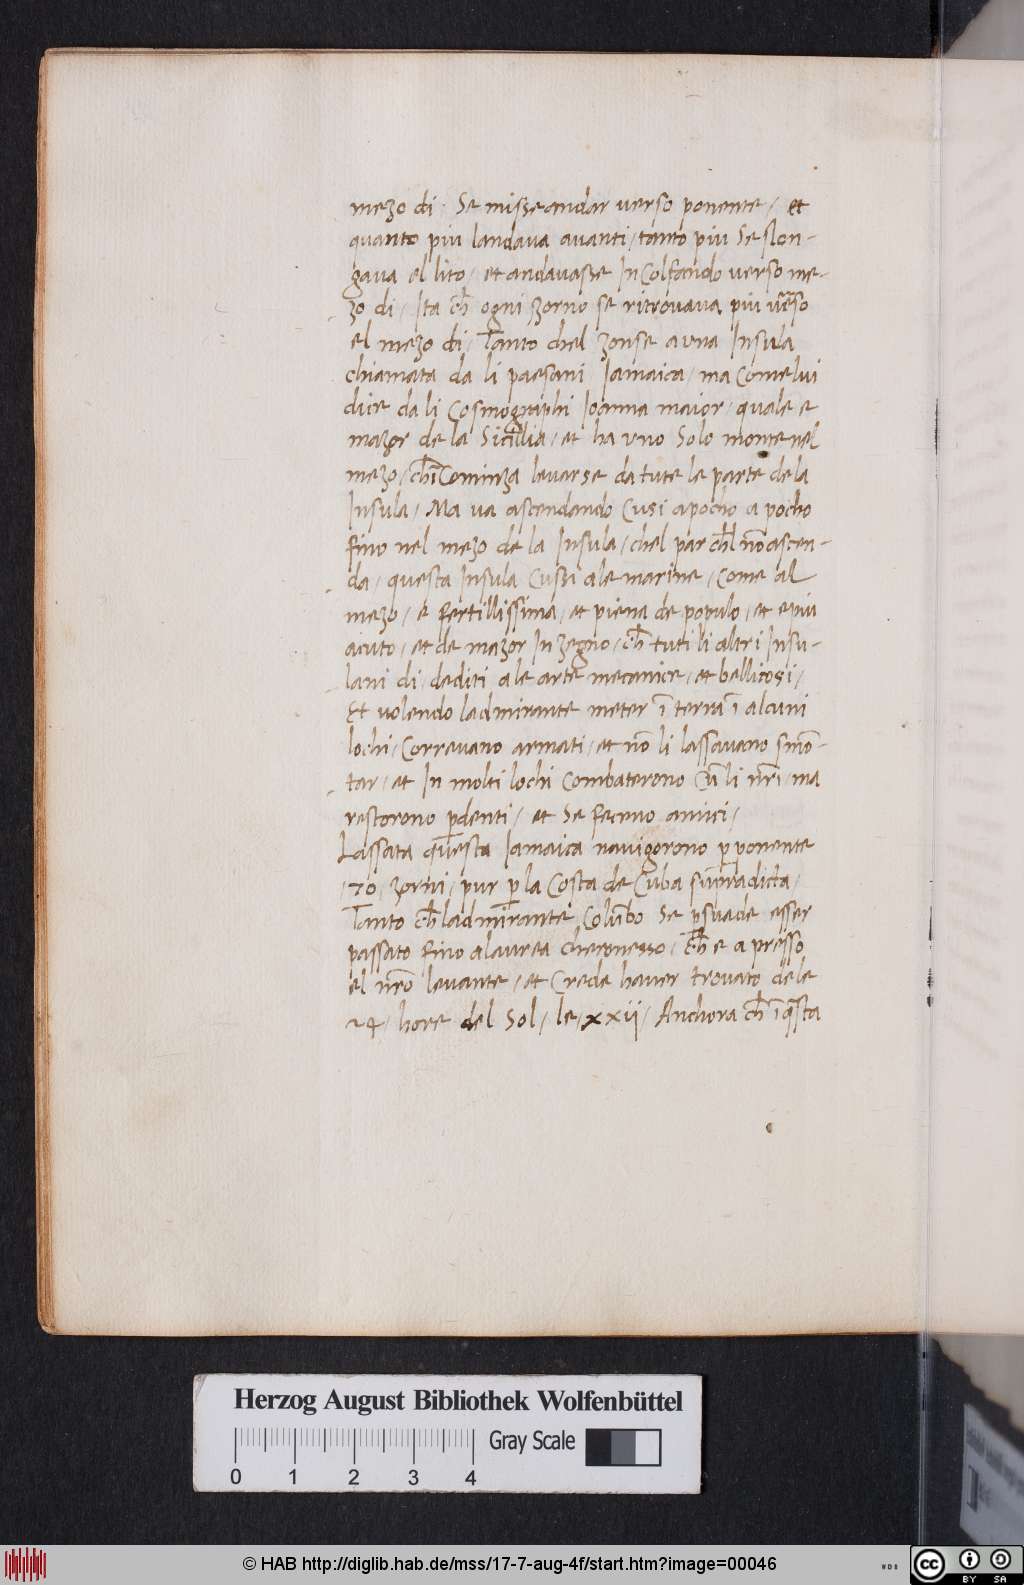 mezo di. Se misse andar verso ponente, et
quanto piu landava avanti, tanto piu Se slon-
gava el lito, et andavasse In Colfando verso me-
zo di, Ita ch̄ ogni zorno se ritrovava piu v̄so
el mezo di, Tanto chel zonse a vna Insula
chiamata da li paesani Iamaica, ma Come lui
dice da li Cosmographi Ioanna maior, quale e
mazor de la Sicillia, et ha vno Solo monte nel
mezo, ch̄ Cominza levarse da tute le parte de la
Insula, Ma va ascendando Cusi a pocho a pocho
fino nel mezo de la Insula, chel par ch̄l nō ascen-
da, questa Insula Cussi ale marine, Come al
mezo, e fertillissima, et piena de populo, et e piu
acuto, et de mazor In zegno, ch̄ tuti li altri Insu-
lani di, dediti ale arte mecanice, et bellicosi,
Et volendo ladmirante meter ī terra ī alcuni
lochi, Correvano armati, et nō li lassavano smō-
tar, et In molti lochi Combaterono cū li nr̄i, ma
restorono p̄denti, et Se feceno amici,
Lassata questa Iamaica navigorono p̱ ponente
,70, zorni, pur p̱ la Costa de Cuba sup̄radicta,
Tanto ch̄ ladmirante Colūbo Se p̱suade esser
passato fino alaurea chersonesso, ch̄ e a presso
el nr̄o levante, et Crede haver trovato de le
24, hore del Sol, le, xxii, Anchora ch̄ ī q̄sta
Herzog August Bibliothek Wolfenbüttel
0 1 2 3 4 Gray Scale
© HAB http://diglib.hab.de/mss/17-7-aug-4f/start.htm?image=00046
WDB
cc BY SA